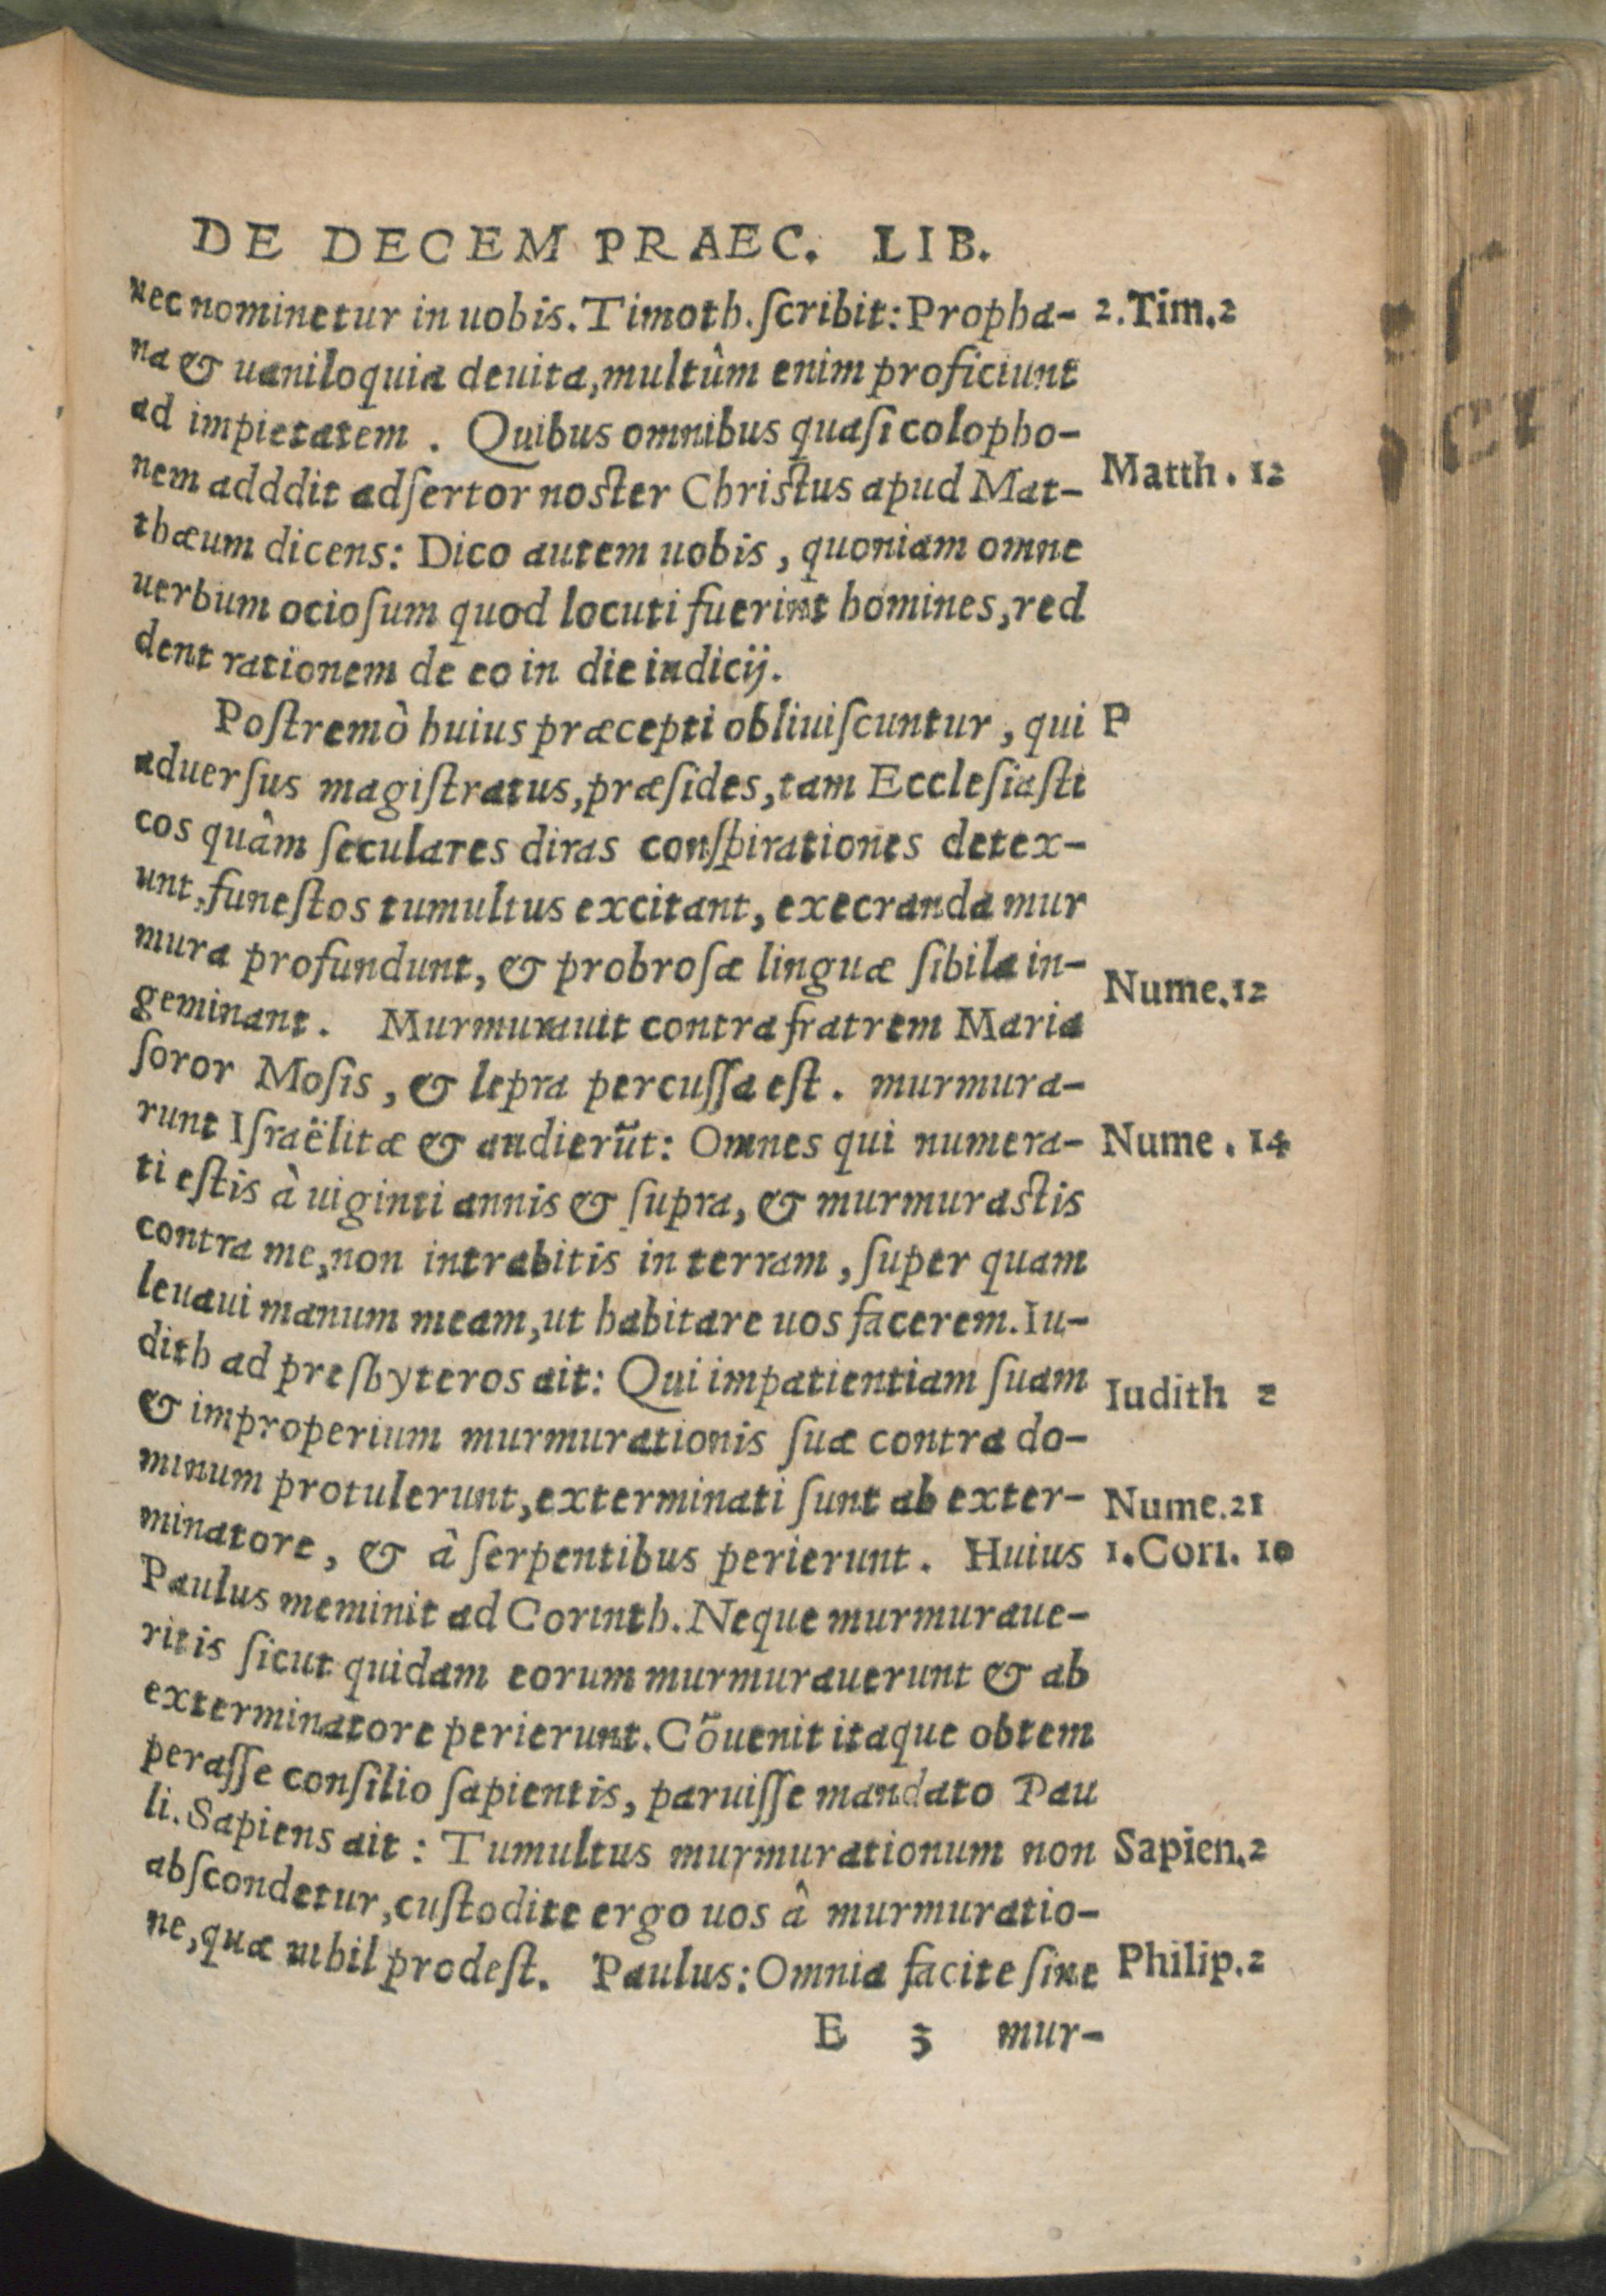 DE DECEM PRAEC. LIB.
nec nominetur in uobis. Timoth. ſcribit: Propha- 2.Tim.2
na & uaniloquia deuita, multûm enim proficiunt
ad impietatem . Quibus omnibus quaſi colopho-
nem adddit adſertor noster Christus apud Mat- Matth. 12
thæum dicens: Dico autem uobis, quoniam omne
uerbum ocioſum quod locuti fuerint homines, red
dent rationem de eo in die iudicij.
Poſtremò huius præcepti obliuiſcuntur, qui P
aduerſus magiſtratus, præſides, tam Eccleſiaſti
cos quâm ſeculares diras conſpirationes detex-
unt, funeſtos tumultus excitant, execranda mur
mura profundunt, & probroſæ linguæ ſibila in-
geminant. Murmurauit contra fratrem Maria Nume.12
ſoror Moſis, & lepra percuſſa eſt. murmura-
runt Iſraëlitæ & audierũt: Omnes qui numera- Nume. 14
ti eſtis à uiginti annis & ſupra, & murmurastis
contra me, non intrabitis in terram, ſuper quam
leuaui manum meam, ut habitare uos facerem. Iu-
dith ad preſbyteros ait: Qui impatientiam ſuam Iudith 2
& improperium murmurationis ſuæ contra do-
minum protulerunt, exterminati ſunt ab exter- Nume.21
minatore, & â ſerpentibus perierunt. Huius 1.Cori. 10
Paulus meminit ad Corinth. Neque murmuraue-
ritis ſicut quidam eorum murmurauerunt & ab
exterminatore perierunt. Cõuenit itaque obtem
peraſſe conſilio ſapientis, paruiſſe mandato Pau
li. Sapiens ait: Tumultus murmurationum non Sapien.2
abſcondetur, cuſtodite ergo uos â murmuratio-
ne, quæ nihil prodeſt. Paulus: Omnia facite ſine Philip.2
E 3 mur-